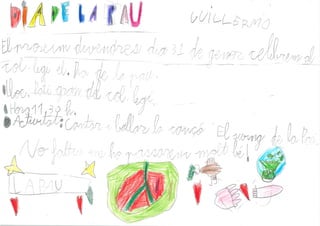 DIA DE LA PAU
GUILLERMO
El proxim divendres dia 31 de gener celebrem al
col·legi el Dia de la pau.
Lloc: Pati gran del col·legi.
Hora: 11,30 h.
Activitat: Cantar i ballar la cançó El swing de la Pau.
No falteu ens ho passarem molt bé!
LA PAU